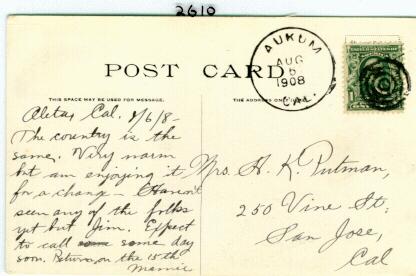 2610
AUKUM
AUG
6
1908
CAL.
POST CARD
THIS SPACE MAY BE USED FOR MESSAGE.
THE ADDRESS ONLY
Aletas, Cal. 8/6/8-
The country is the
same. Very warm
but am enjoying it
for a change - Haven't
seen any of the folks
yet but Jim. Expect
to call some some day
soon. Return on the 15th
Mamie
Mrs. H. K. Putman,
250 Vine St.,
San Jose,
Cal